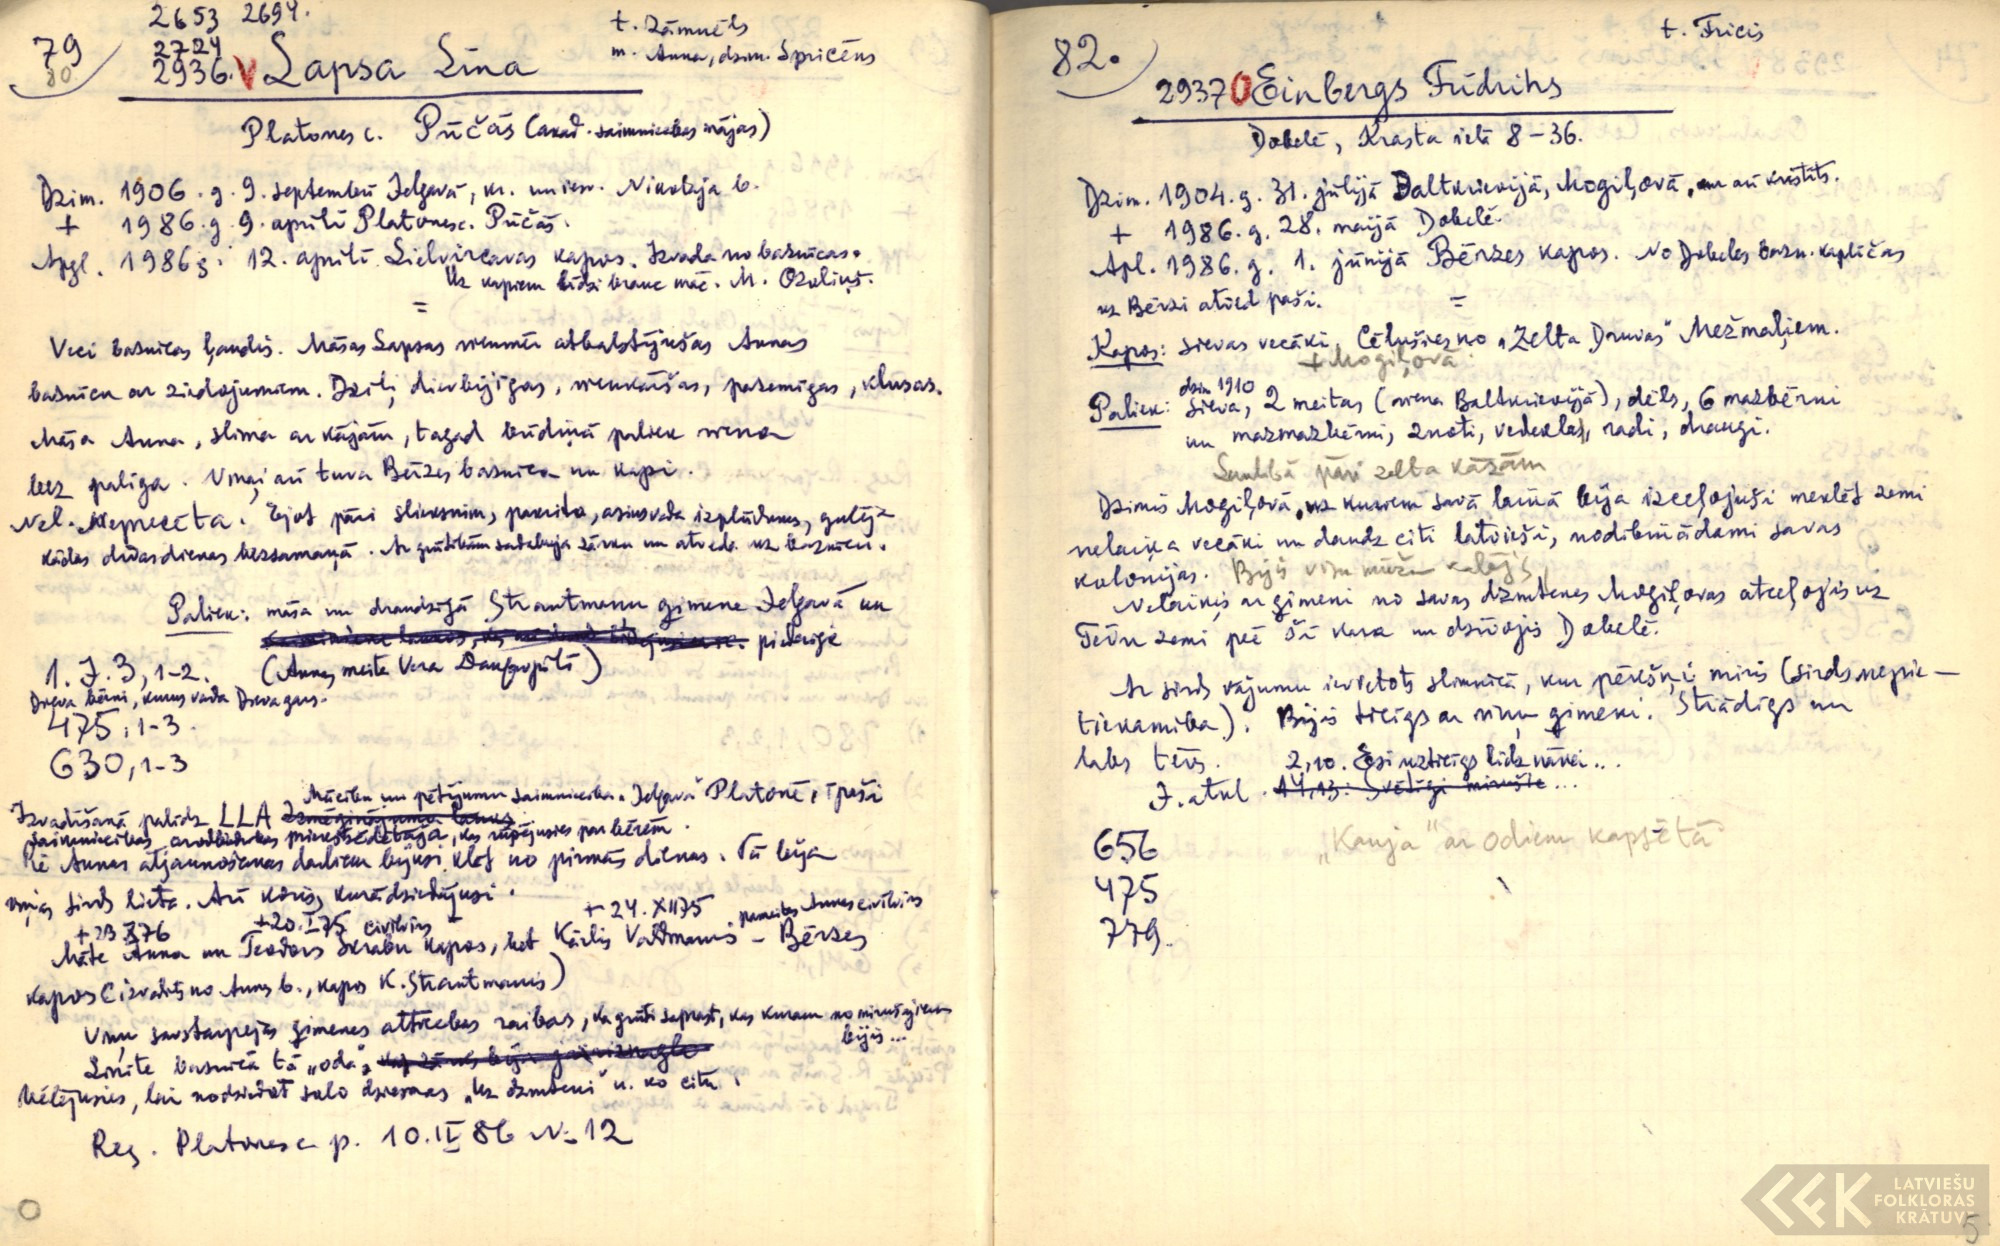 2653 2694.
79
80
2724
2936. V Lapsa Līna
t. Zāmuēls
m. Anna, dzim. Spricēns
Platones c. Pūčās (akad. saimniecības mājas)
Dzim. 1906. g. 9. septembrī Jelgavā, kr. Nikolaja b.
+ 1986. g. 9. aprīlī Platones c. Pūčās.
Apgl. 1986 g. 12. aprīlī Lielvircavas kapos. Izvada no baznīcas.
Uz kapiem līdzi brauc māc. M. Ozoliņš.
=
Veci baznīcas ļaudis. Māsas Lapsas vienmēr atbalstījušas Annas
baznīcu ar ziedojumiem. Dziļi dievbijīgas, vienkāršas, pazemīgas, klusas.
Māsa Anna, slima ar kājām, tagad būdiņā paliek viena
bez palīga. Viņai arī tuva Bērzes baznīca un kapi.
Nel. neprecēta. Ejot pāri slieksnim, pakrita, asinsvada izplūdums, gulēja
kādas divas dienas bezsamaņā. Ar grūtībām sadabūja zārku un atveda uz baznīcu.
Paliek: māsa un draudzīgā Strautmaņu ģimene Jelgavā un
piederīgie
(Annas meita Vera Daugavpilī)
1. J. 3, 1-2.
Dieva bērni, kurus vada Dieva gars.
475, 1-3.
630, 1-3
Mācību un pētījumu saimniecība "Jelgava" Platonē, īpaši
Izvadīšanā palīdz LLA
saimniecības arodbiedrības priekšsēdētāja, kas rūpējusies par bērēm.
Pē Annas atjaunošanas darbiem bijusi klāt no pirmās dienas. Tā bija
viņas sirds lieta. Arī koris, kurā dziedājusi.
+ 23 X 76 + 20. I 75 civilvīrs + 24. XII 75 Annas civilvīrs
Māte Anna un Teodors Skrabu kapos, bet Kārlis Valdmanis – Bērzes
kapos (izvadīts no Annas b., kapos K. Strautmanis)
Viņu savstarpējās ģimenes attiecības raibas, ka grūti saprast, kas kuram no mirušajiem
bijis...
Līnīte baznīcā tā "oda",
Mēģējusies, lai nodziedot solo dziesmas "Uz dzimteni" u. ko citu.
Reg. Platones c p. 10. IV 86 № 12
82.
t. Fricis
2937 O Einbergs Frīdrihs
Dobelē, Krasta ielā 8–36.
Dzim. 1904. g. 31. jūlijā Baltkrievijā, Mogiļovā, tur arī kristīts.
+ 1986. g. 28. maijā Dobelē.
Apl. 1986. g. 1. jūnijā Bērzes kapos. No Dobeles bazn. kapličas
uz Bērzi atved paši.
=
Kapos: sievas vecāki. Cēlušies no "Zelta Druvas" Mežmaļiem.
+ Mogiļovā
dzim 1910
Paliek: Sieva, 2 meitas (viena Baltkrievijā), dēls, 6 mazbērni
un mazmazbērni, znoti, vedeklas, radi, draugi.
Laulībā pāri zelta kāzām
Dzimis Mogiļovā, uz kurieni savā laikā bija izceļojuši meklēt zemi
nelaiķa vecāki un daudz citi latvieši, nodibinādami savas
kolonijas. Bijis visu mūžu kalējs.
Nelaiķis ar ģimeni no savas dzimtenes Mogiļovas atceļojis uz
Tēvu zemi pēc šī kara un dzīvojis Dobelē.
Ar sirds vājumu ievietots slimnīcā, kur pēkšņi miris (sirds nepie-
tiekamība). Bijis ticīgs ar visu ģimeni. Strādīgs un
labs tēvs. 2,10. Esi uzticīgs līdz nāvei...
J. atkl. 14,13: Svētīgi mirušie...
656
475
779.
"Kauja" ar odiem kapsētā
LATVIEŠU
FOLKLORAS
KRĀTUVE
5